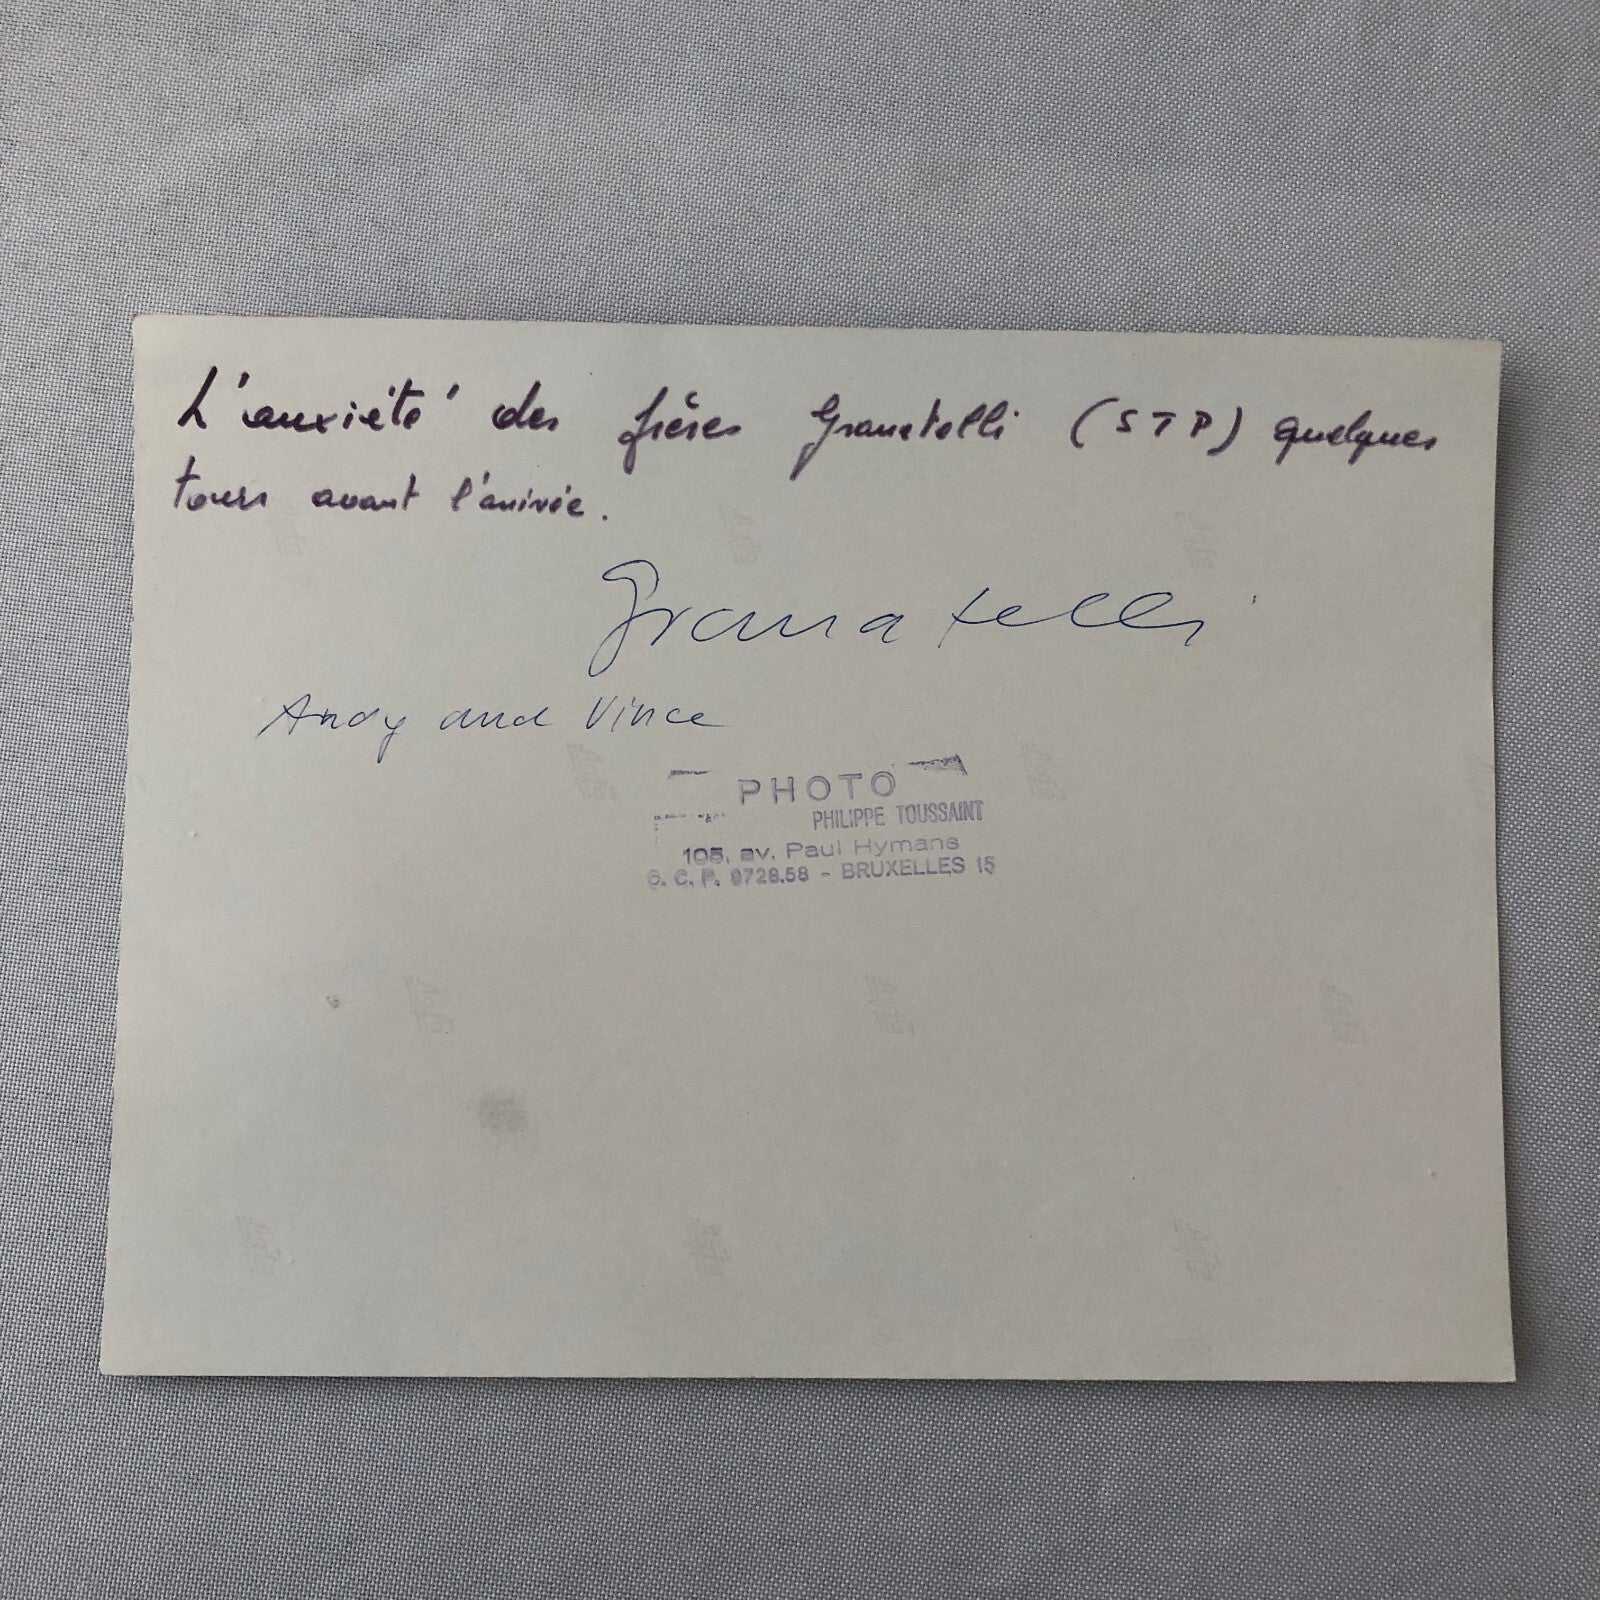 L'anxiété des frères Granatelli (STP) quelques
tours avant l'arrivée.
Granatelli
Andy and Vince
PHOTO
PHILIPPE TOUSSAINT
105, av. Paul Hymans
C. C. P. 9728.58 - BRUXELLES 15